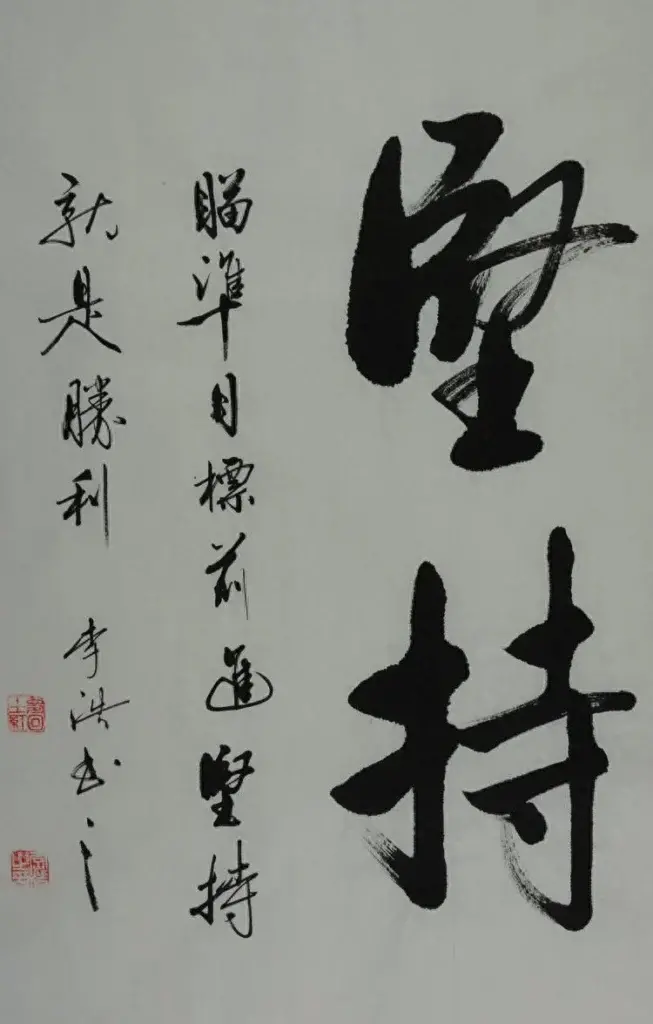 堅持
瞄準目標前進堅持
就是勝利 李浩書